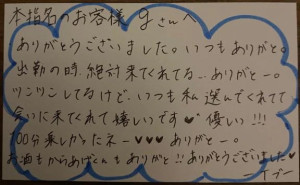 本指名のお客様 gさんへ
ありがとうございました。いつもありがと。
出勤の時、絶対来てくれてる… ありがとー。
ツンツンしてるけど、いつも私選んでくれてて
会いに来てくれて嬉しいです♥ 優しい!!!
100分楽しかったネー♥♥♥ ありがとー。
お酒もからあげくんもありがと!! ありがとうございました♥